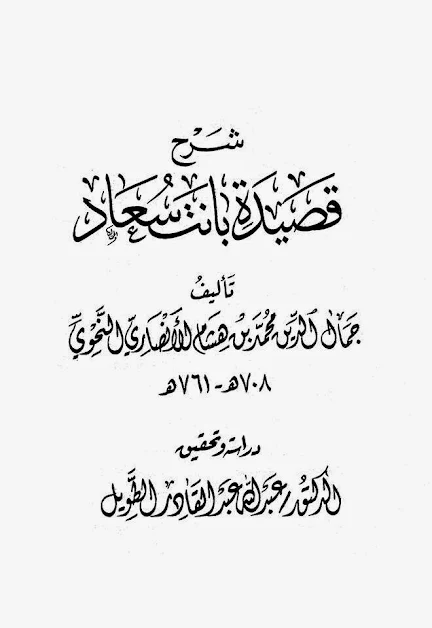 شَرْح
قَصِيدَةِ بَانَتْ سُعَاد
تَأليفُ
جَمَال الدِّين مُحَمَّد بْن هِشَام الأَنْصَارِيِّ النَّحْوِيِّ
٧٠٨هـ - ٧٦١هـ
دراسة وتحقيق
الدكتُور عَبد الله عَبد القَادِر الطَّوِيل